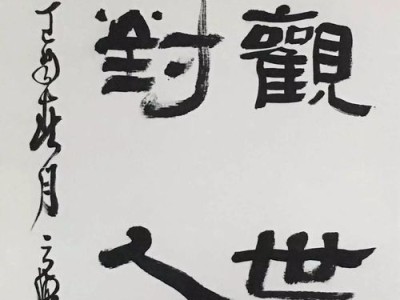 觀世
對人
丁酉春月